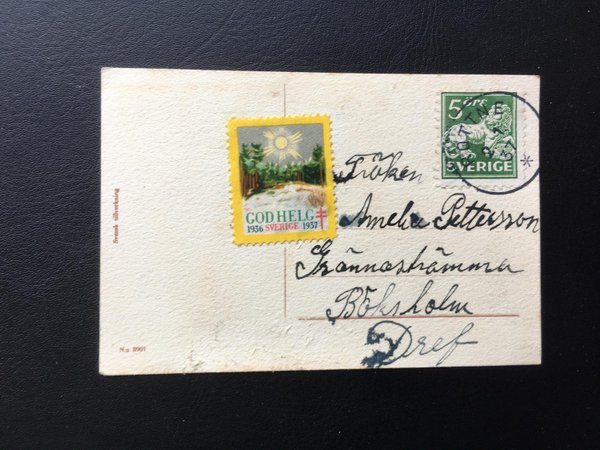 5 ÖRE
SVERIGE
ROTTNE
2 1
37
GOD HELG
1936 SVERIGE 1937
Fröken
Amelia Pettersson
Böksholm
Dref
Svensk tillverkning
N:o 8901